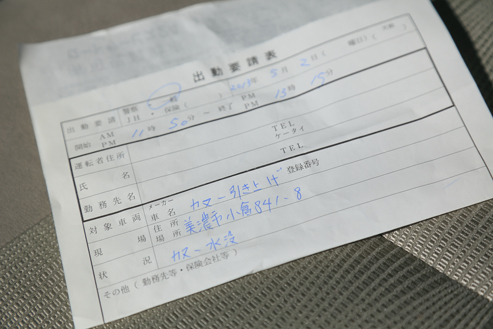 出動要請表
2019年 5月 2日( 曜日)
出動要請 警察 一般
JH ・ 保険( )
開始 AM PM 11時 50分 ～ 終了 PM 13時 15分
運転者住所
TEL
ケータイ
氏名
勤務先名 TEL
対象車両 メーカー 車名 カヌー引き上げ 登録番号
現場 住所 場所 美濃市小倉841-8
状況 カヌー水没
その他(勤務先等・保険会社等)